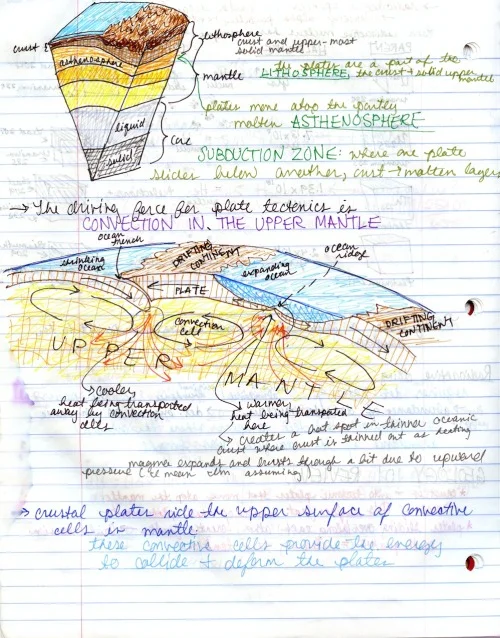 lithosphere
crust and upper-most
solid mantle
crust
asthenosphere
mantle
the plates are a part of the
LITHOSPHERE, the crust + solid upper
mantle
plates move atop the partly
molten ASTHENOSPHERE
liquid
core
solid
SUBDUCTION ZONE: where one plate
slides below another, crust → molten layers
→ The driving force for plate tectonics is
CONVECTION IN THE UPPER MANTLE
ocean
trench
shrinking
ocean
DRIFTING
CONTINENT
expanding
ocean
ocean
ridge
PLATE
convection
cell
DRIFTING
CONTINENT
UPPER
MANTLE
cooler
heat being transported
away by convection
cells
warmer
heat being transported
here
→ creates a hot spot in thinner oceanic
crust where crust is thinned out as heating
magma expands and bursts through a bit due to upward
pressure (I mean I'm assuming)
→ crustal plates ride the upper surface of convective
cells in mantle.
these convective cells provide the energy
to collide + deform the plates